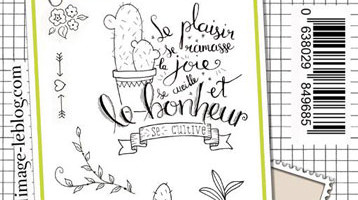 Le plaisir
se ramasse
la joie
se cueille et
le bonheur
se cultive
image-leblog.com
0 638029 849685